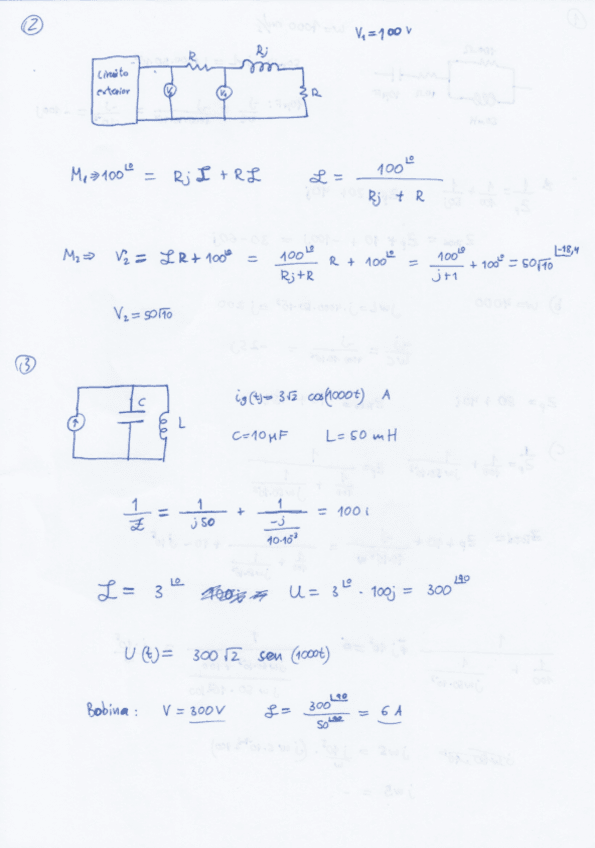 ②
V₁=100 V
R
Rj
Circuito
exterior
V
V₁
R
M₁⇒100∠0 = Rj I + R I    I = 100∠0 / (Rj + R)
M₂⇒ V₂ = I R + 100∠0 = 100∠0 / (Rj+R) R + 100∠0 = 100∠0 / (j+1) + 100∠0 = 50√10∠-18,4
V₂ = 50√10
③
C
L
ig(t)= 3√2 cos(1000t) A
C=10μF    L=50 mH
1/Z = 1/(j50) + 1/(-j/(10·10⁻³)) = 100i
I = 3∠0    U = 3∠0 · 100j = 300∠90
U(t)= 300√2 sen (1000t)
Bobina: V = 300V    I = 300∠90 / 50∠90 = 6 A